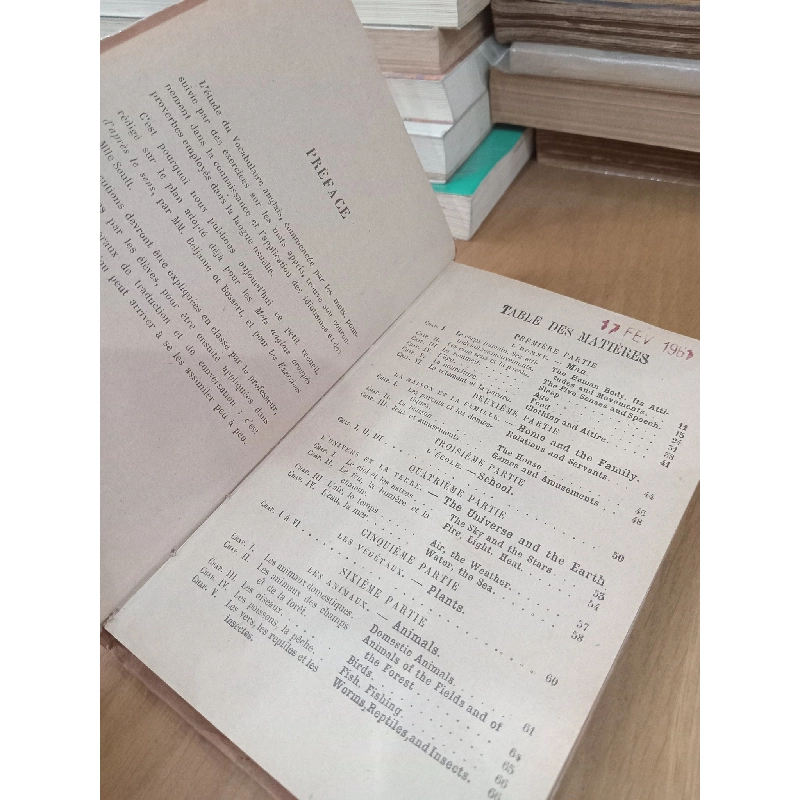 PRÉFACE
L'étude du Vocabulaire anglais, commencée par les mots, pour-
suivie par des exercices sur les mots appris, trouve son couron-
nement dans la connaissance et l'application des idiotismes et des
proverbes employés dans la langue usuelle.
C'est pourquoi nous publions aujourd'hui ce petit recueil,
rédigé sur le plan adopté déjà pour les Mots anglais groupés
d'après le sens, par MM. Beljame et Bossert, et pour les Exercices
Mlle Soult.
devront être expliquées en classe par le professeur,
par les élèves, pour être ensuite appliquées dans
de traduction et de conversation : c'est
peut arriver à se les assimiler peu à peu.
17 FEV 1961
TABLE DES MATIÈRES
PREMIÈRE PARTIE
L'HOMME. — Man
The Human Body, Its Atti-
tudes and Movements. 11
The Five Senses and Speech. 15
Sleep
Age
Food
Clothing and Attire. 41
DEUXIÈME PARTIE
LA MAISON ET LA FAMILLE. — Home and the Family.
Relations and Servants. 44
CHAP. II. La maison The House 46
CHAP. III. Jeux et amusements Games and Amusements 48
TROISIÈME PARTIE
L'ÉCOLE. — School.
CHAP. I, II, III 50
QUATRIÈME PARTIE
L'UNIVERS ET LA TERRE. — The Universe and the Earth
CHAP. I. Le ciel et les astres. The Sky and the Stars 53
CHAP. II. Le feu, la lumière et la
chaleur. Fire, Light, Heat. 54
CHAP. III. L'air, le temps Air, the Weather. 57
CHAP. IV. L'eau, la mer. Water, the Sea. 58
CINQUIÈME PARTIE
LES VÉGÉTAUX. — Plants.
CHAP. I à VI 60
SIXIÈME PARTIE
LES ANIMAUX. — Animals.
CHAP. I. Les animaux domestiques. Domestic Animals. 61
CHAP. II. Les animaux des champs Animals of the Fields and of
et de la forêt. the Forest 64
CHAP. III. Les oiseaux. Birds. 65
CHAP. IV. Les poissons, la pêche. Fish, Fishing 66
CHAP. V. Les vers, les reptiles et les Worms, Reptiles, and Insects. 66
insectes.